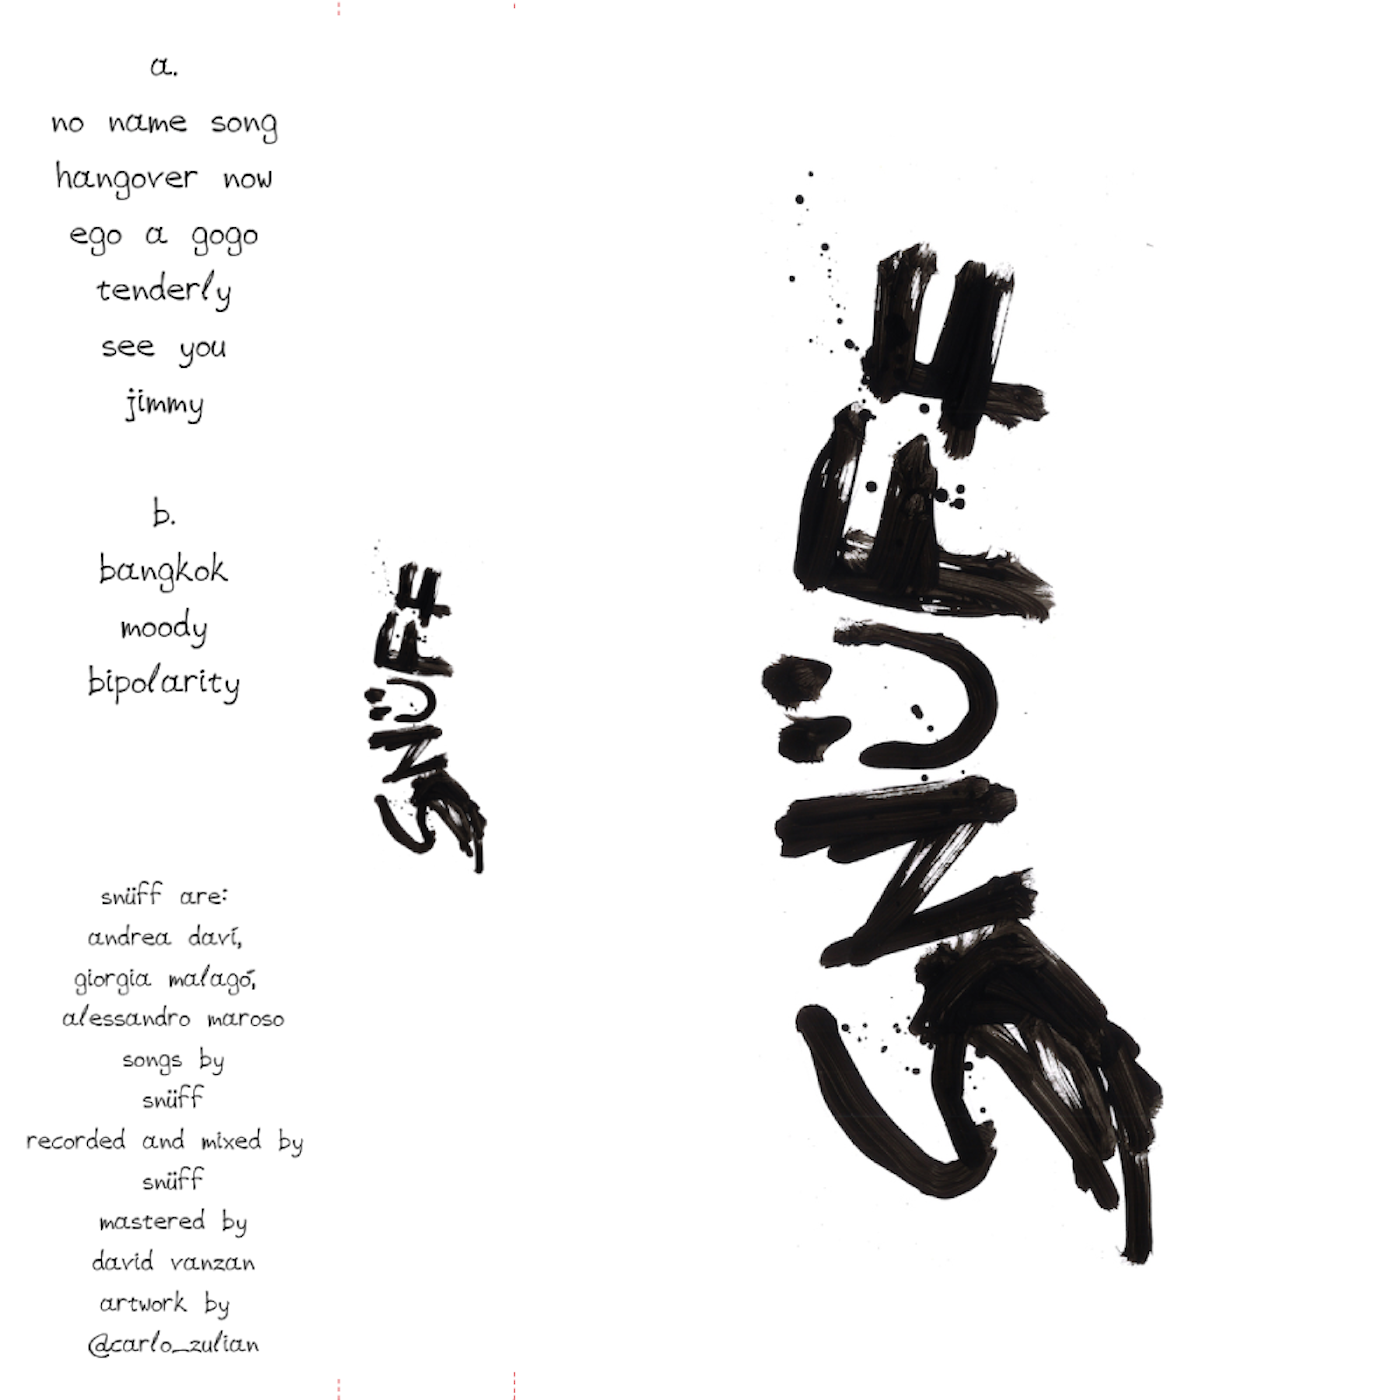 a.
no name song
hangover now
ego a gogo
tenderly
see you
jimmy
b.
bangkok
moody
bipolarity
snüff are:
andrea daví,
giorgia malagó,
alessandro maroso
songs by
snüff
recorded and mixed by
snüff
mastered by
david vanzan
artwork by
@carlo_zulian
SNÜFF
SNÜFF